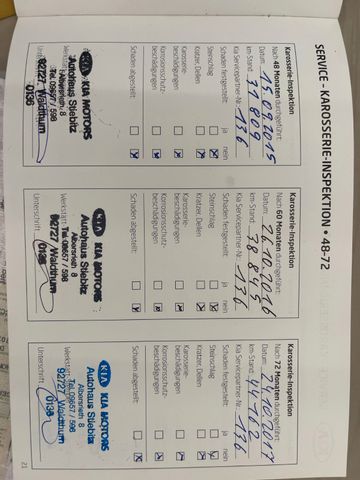 SERVICE - KAROSSERIE-INSPEKTION • 48-72
Karosserie-Inspektion
Nach 48 Monaten durchgeführt:
Datum: 15.09.2015
km-Stand:
Kia Servicepartner-Nr.: 136
Schaden festgestellt: ja nein
Steinschlag
Kratzer, Dellen
Karosserie-
beschädigungen
Korrosionsschutz-
beschädigungen
Schaden abgestellt:
KIA KIA MOTORS
Autohaus Stieblitz
Albersrieth 8
Tel. 09657 / 598
92727 Waldthurn
0136
Karosserie-Inspektion
Nach 60 Monaten durchgeführt:
Datum: 26.10.2016
km-Stand:
Kia Servicepartner-Nr.: 136
Schaden festgestellt: ja nein
Steinschlag
Kratzer, Dellen
Karosserie-
beschädigungen
Korrosionsschutz-
beschädigungen
Schaden abgestellt:
KIA KIA MOTORS
Autohaus Stieblitz
Albersrieth 8
Tel. 09657 / 598
92727 Waldthurn
0136
Unterschrift
Karosserie-Inspektion
Nach 72 Monaten durchgeführt:
Datum: 24.10.2017
km-Stand: 44762
Kia Servicepartner-Nr.: 136
Schaden festgestellt: ja nein
Steinschlag
Kratzer, Dellen
Karosserie-
beschädigungen
Korrosionsschutz-
beschädigungen
Schaden abgestellt:
KIA KIA MOTORS
Autohaus Stieblitz
Albersrieth 8
Tel. 09657 / 598
92727 Waldthurn
0136
Unterschrift
21